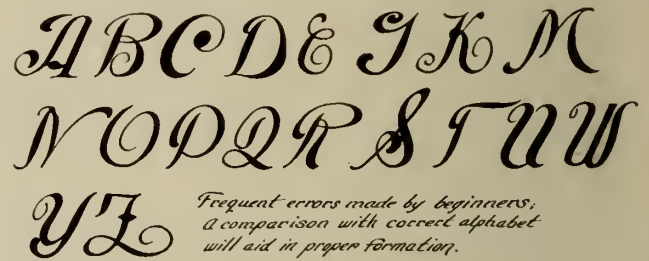 A B C D E G K M
N O P Q R S T U W
Y Z Frequent errors made by beginners;
A comparison with correct alphabet
will aid in proper formation.